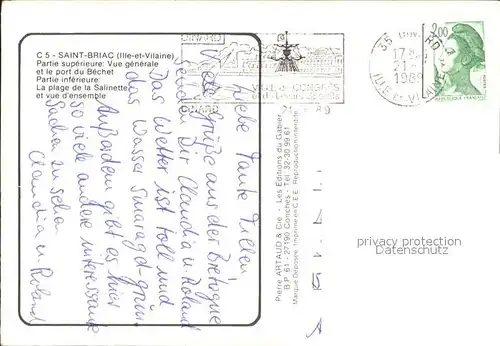 C 5 - SAINT-BRIAC (Ille-et-Vilaine)
Partie supérieure: Vue générale
et le port du Béchet
Partie inférieure:
La plage de la Salinette
et vue d'ensemble
DINARD
VILLE de CONGRÈS
DINARD
21 - 8 - 89
35
17 H
21 - 8
1989
ILLE et VILAINE
2,00
Liebe Tante Tilleu
viele Grüße aus der Bretagne
senden Dir Claudia u. Roland
Das Wetter ist toll und
das Wasser smaragd-grün.
Außerdem gibt es hier
so viele andere interessante
Sachen zu sehen
Claudia u. Roland
Pierre ARTAUD & Cie - Les Editions du Gabier
B.P. 61 - 27190 Conches - Tél. 32-30 99 61
Marque Déposée Imprimé en C.E.E. Reproduction interdite
privacy protection
Datenschutz